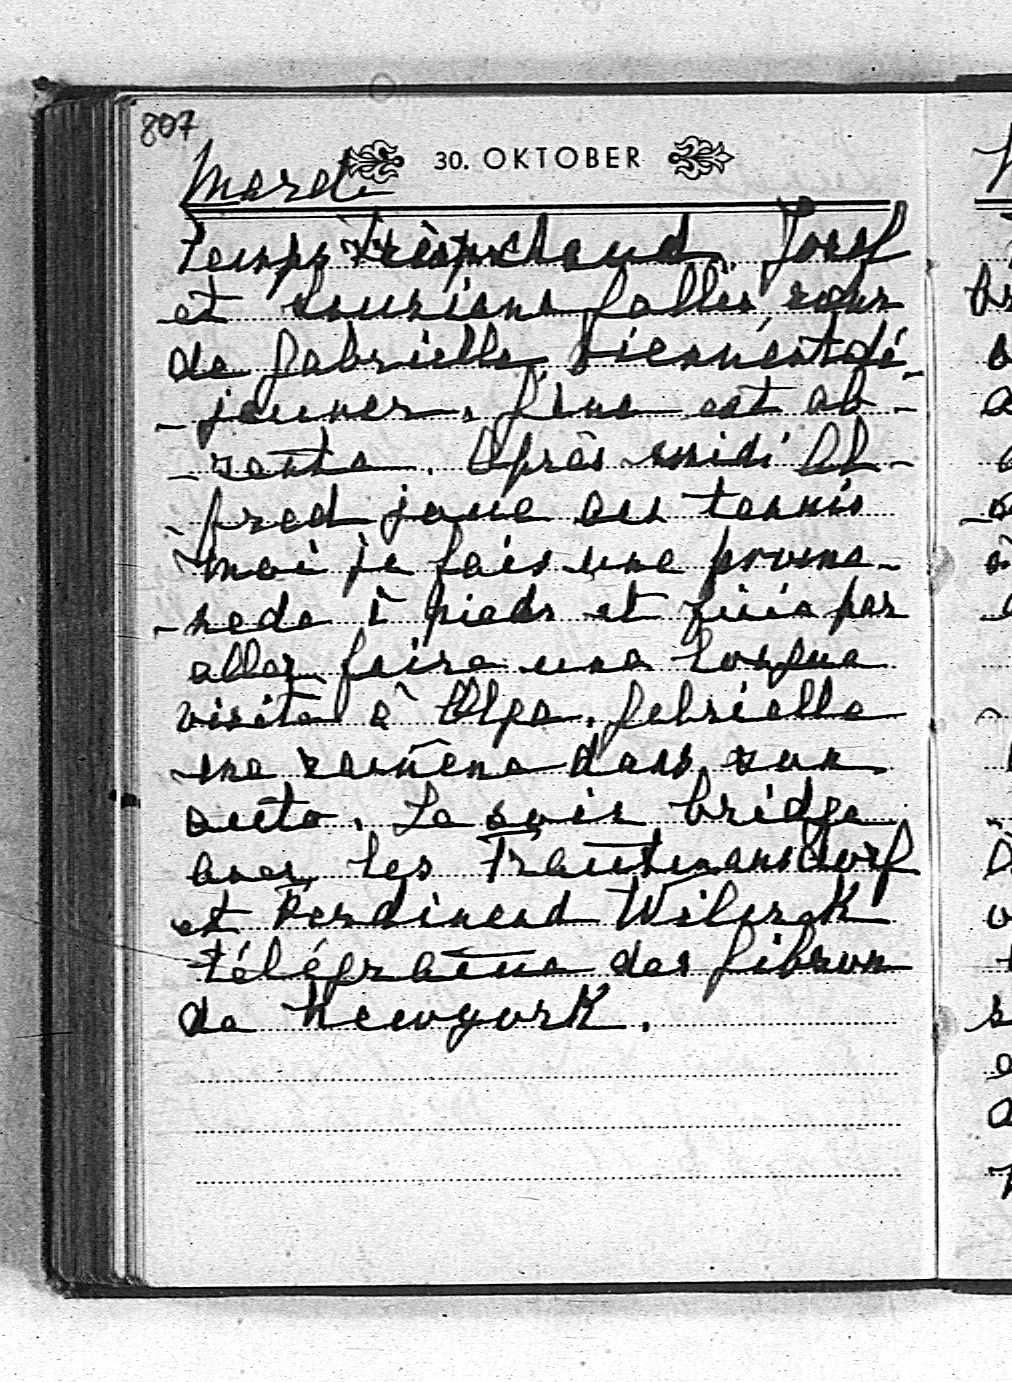 807
30. OKTOBER
Mardi
Temps très chaud. Josef
et
de Gabrielle, viennent dé-
-jeuner. est ab-
-sente. Après midi Al-
-fred joue au tennis
moi je fais une prome-
-nade à pieds et finis par
aller faire une longue
visite à Olga. Gabrielle
me ramène dans son
auto. Le soir bridge
avec les Trautmansdorf
et Ferdinand Wilczek
télégramme des Gibson
de Newyork.